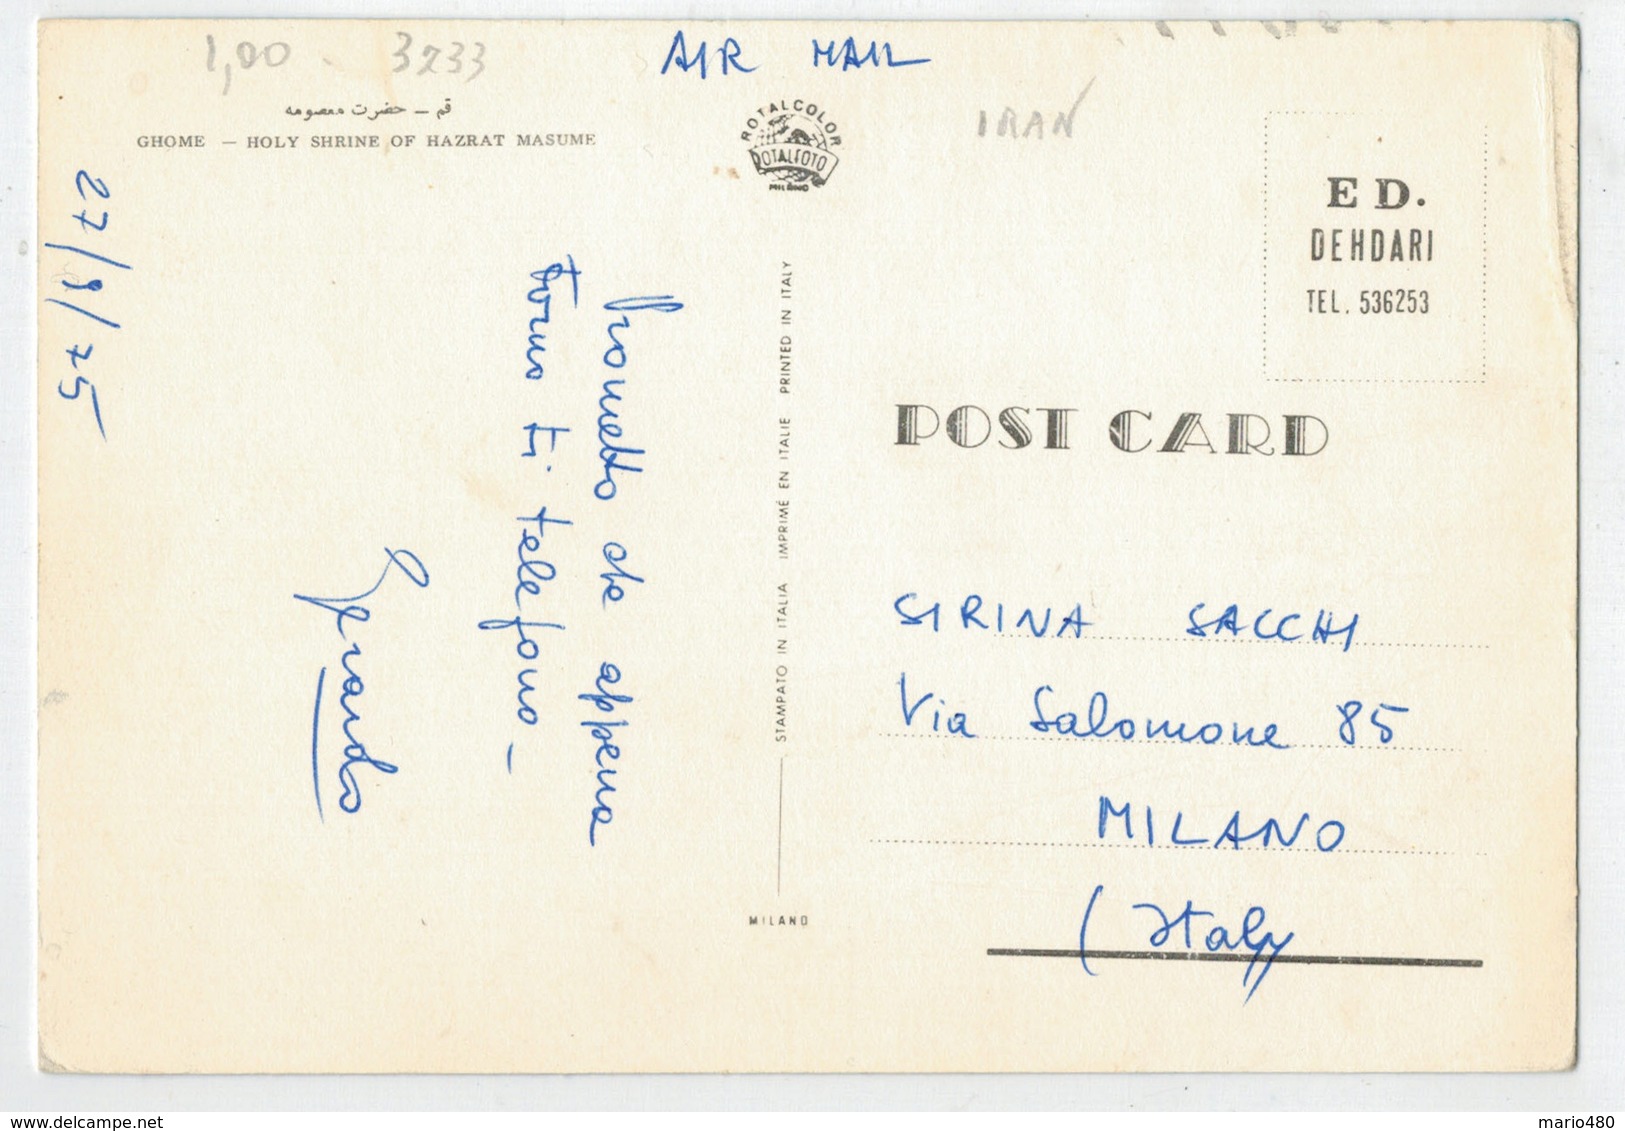 1,00 - 3233
AIR MAIL
IRAN
قم — حضرت معصومه
GHOME — HOLY SHRINE OF HAZRAT MASUME
ROTALCOLOR
ROTALFOTO
MILANO
ED.
DEHDARI
TEL. 536253
POST CARD
27/9/75
Prometto che appena
torno ti telefono -
Gerardo
STAMPATO IN ITALIA IMPRIMÉ EN ITALIE PRINTED IN ITALY
MILANO
SIRINA SACCHI
Via Salomone 85
MILANO
(Italy
mario480